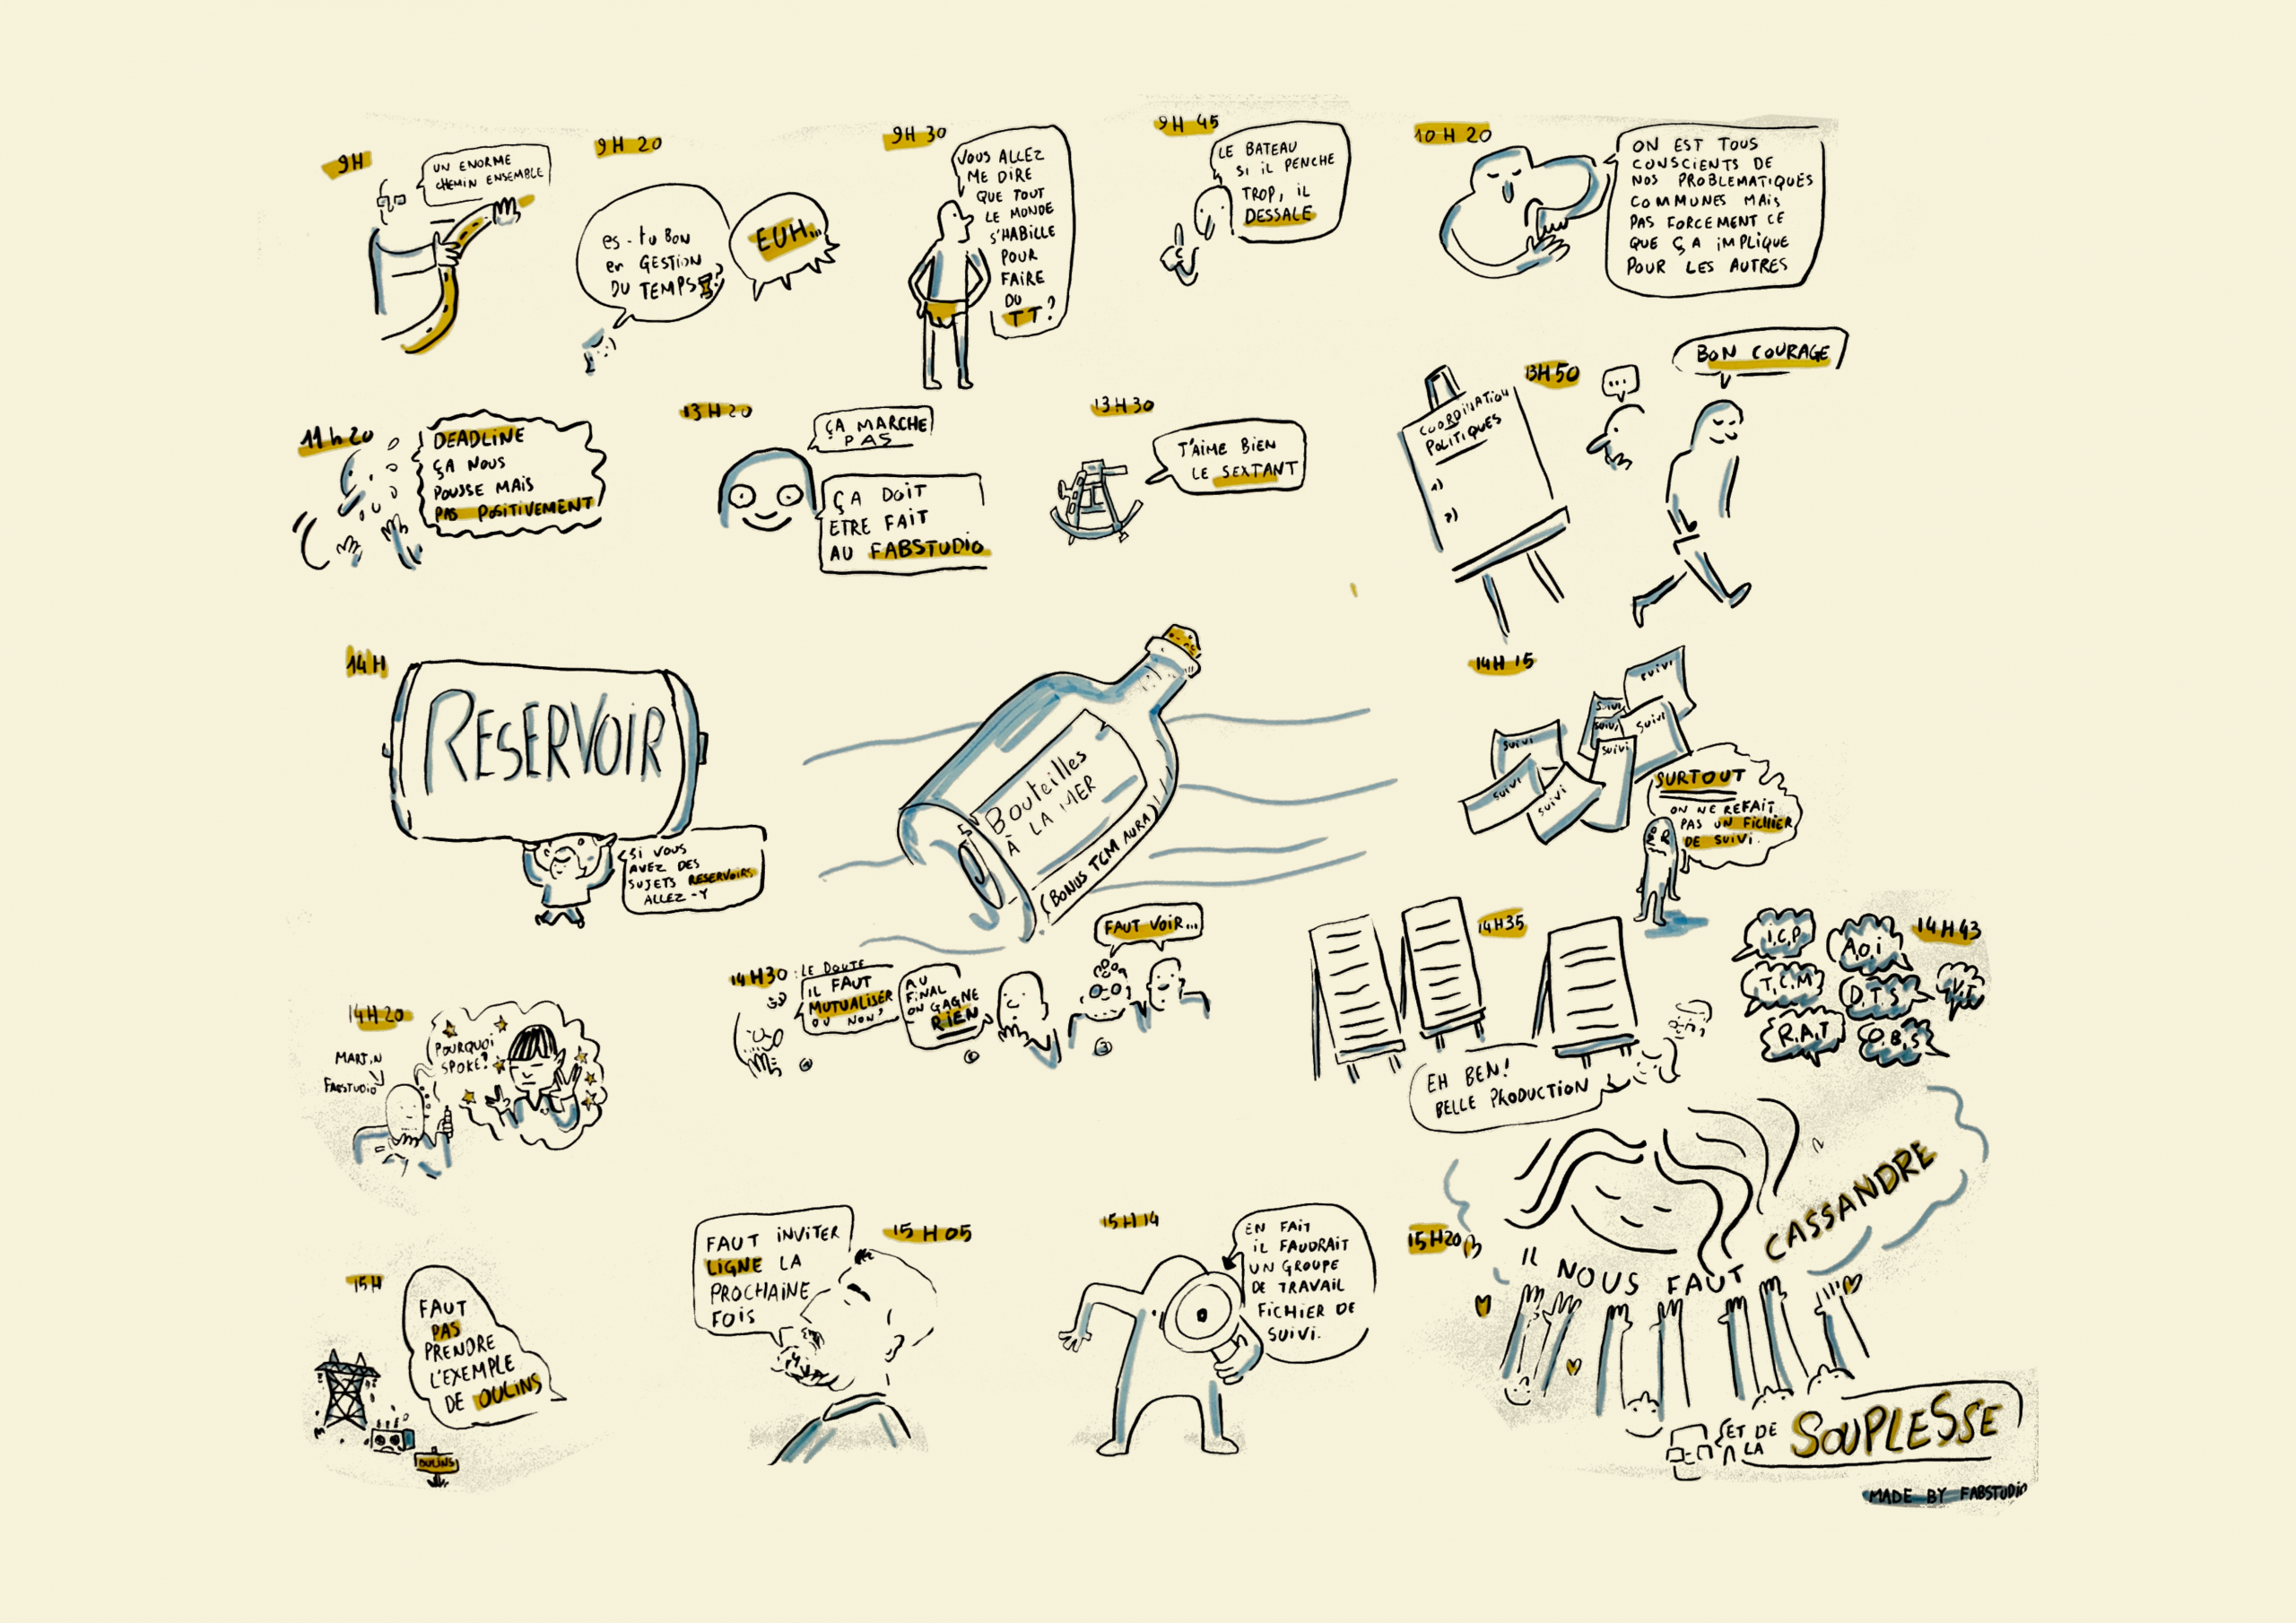 9H
UN ENORME
CHEMIN ENSEMBLE
9H 20
es-tu BON
en GESTION
DU TEMPS?
EUH...
9H 30
VOUS ALLEZ
ME DIRE
QUE TOUT
LE MONDE
S'HABILLE
POUR
FAIRE
DU
TT?
9H 45
LE BATEAU
SI IL PENCHE
TROP, IL
DESSALE
10H 20
ON EST TOUS
CONSCIENTS DE
NOS PROBLEMATIQUES
COMMUNES MAIS
PAS FORCEMENT CE
QUE ÇA IMPLIQUE
POUR LES AUTRES
11h20
DEADLINE
ÇA NOUS
POUSSE MAIS
PAS POSITIVEMENT
13H20
ÇA MARCHE
PAS
ÇA DOIT
ETRE FAIT
AU FABSTUDIO
13H30
T'AIME BIEN
LE SEXTANT
13H50
COORDINATION
POLITIQUES
1)
2)
...
BON COURAGE
14H
RESERVOIR
SI VOUS
AVEZ DES
SUJETS RESERVOIRS
ALLEZ-Y
Bouteilles
À LA MER
(BONUS TCM AURA)
14H 15
SUIVI
SUIVI
SUIVI
SUIVI
SUIVI
SUIVI
SUIVI
SUIVI
SURTOUT
ON NE REFAIT
PAS UN FICHIER
DE SUIVI.
14H20
MARTIN
FABSTUDIO
POURQUOI
SPOKE?
14H30 : LE DOUTE
IL FAUT
MUTUALISER
OU NON?
AU
FINAL
ON GAGNE
RIEN
FAUT VOIR...
14H35
EH BEN!
BELLE PRODUCTION
14H43
I.C.P
A.O.I
T.C.M
D.T.S
R.A.T
O.B.S
15H
FAUT
PAS
PRENDRE
L'EXEMPLE
DE OULINS
OULINS
15H05
FAUT INVITER
LIGNE LA
PROCHAINE
FOIS
15H14
EN FAIT
IL FAUDRAIT
UN GROUPE
DE TRAVAIL
FICHIER DE
SUIVI.
15H20
IL NOUS FAUT CASSANDRE
ET DE
LA SOUPLESSE
MADE BY FABSTUDIO